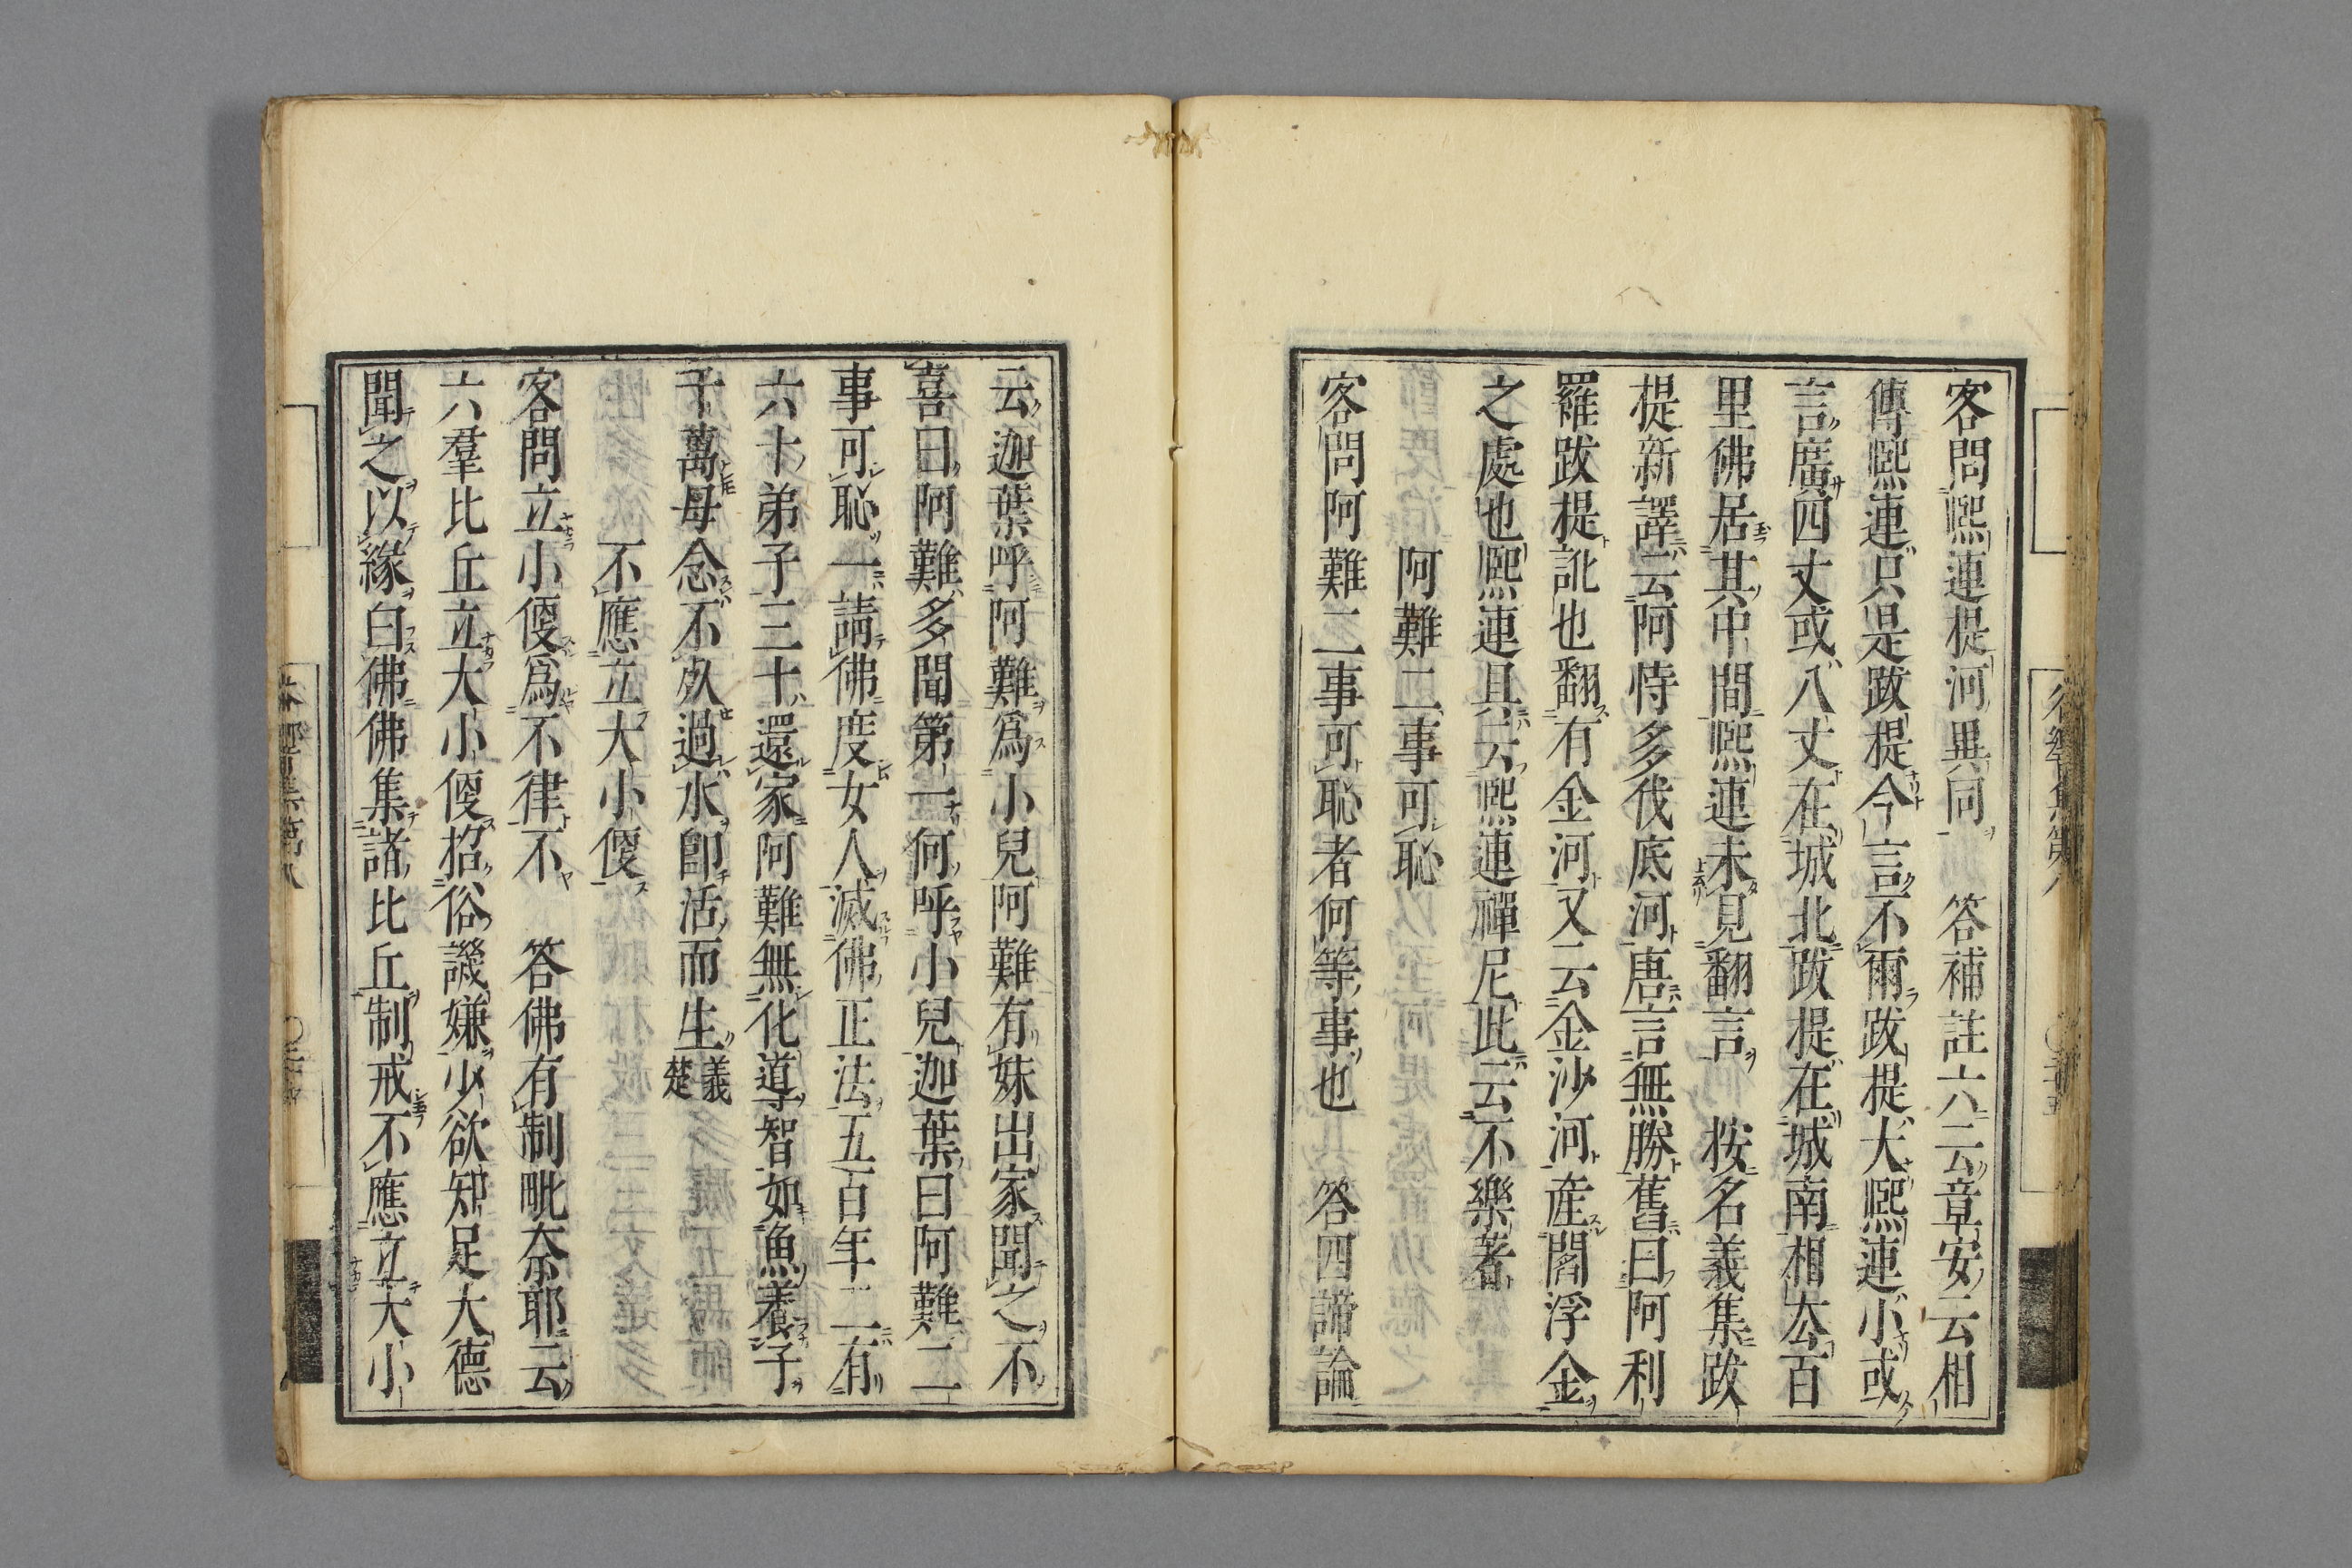 客問熈連提河異同　答補註六云章安云相
傳熈連只是跋提今言不爾跋提大熈連小或
言廣四丈或八丈在城北跋提在城南相厺百
里佛居其中間熈連未見翻言　按名義集跋
提新譯云阿恃多伐底河唐言無勝舊曰阿利
羅跋提訛也翻有金河又云金沙河産閻浮金
之處也熈連具云熈連禪尼此云不樂著
阿難二事可恥
客問阿難二事可恥者何等事也　答四諦論
云迦葉呼阿難爲小兒阿難有妹出家聞之不
喜曰阿難多聞第一何呼小兒迦葉曰阿難二
事可恥一請佛度女人滅佛正法五百年二有
六十弟子三十還家阿難無化道智如魚養子
千萬母念不㱃過水卽活而生義楚
不應立大小便
客問立小便爲不律不　答佛有制毗奈耶云
六羣比丘立大小便招俗譏嫌少欲知足大德
聞之以緣白佛佛集諸比丘制戒不應立大小